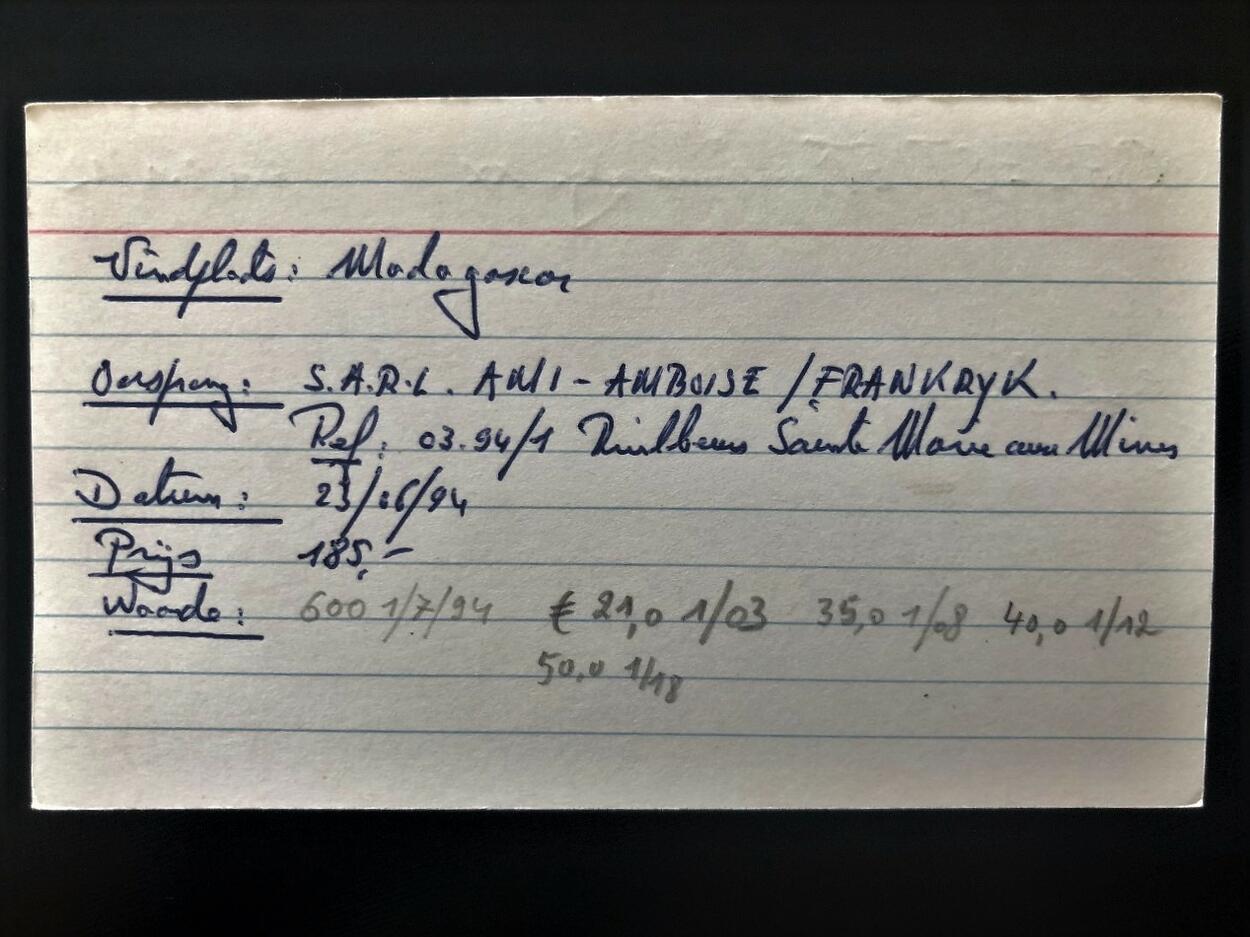 Vindplats: Madagascar
Oorsprong: S.A.R.L. AMI - AMBOISE / FRANKRYK.
Ref: 03.94/1 Ruilbeurs Sainte Marie aux Mines
Datum: 23/06/94
Prijs 185,-
Waarde: 600 1/7/94 € 21,0 1/03 35,0 1/08 40,0 1/12
50,0 1/18